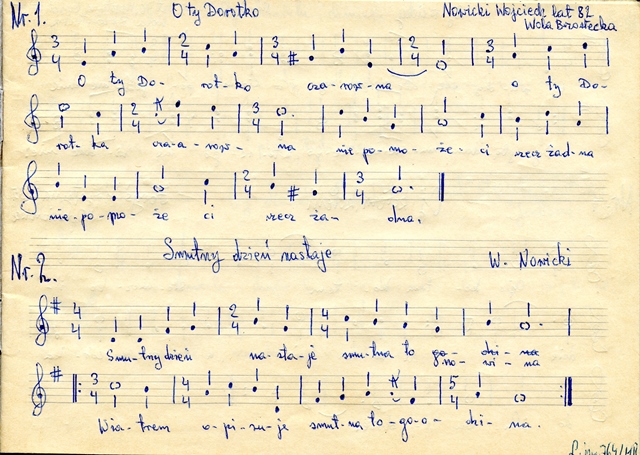 Nr. 1. O ty Dorotko Nowicki Wojciech lat 82
Wola Brostecka
O ty Do- rot- ko cza-row-na o ty Do-
rot-ka cza-a-row-na nie po-mo-że-ci rzecz żad-na
nie-po-mo-że ci rzecz ża- dna.
Nr. 2. Smutny dzień nastaje W. Nowicki
Smu-tny dzień na-sta-je smu-tna to go-dzi-na
no-wi-na
Wia-trem o-pi-su-je smut-na to-go-o-dzi-na.